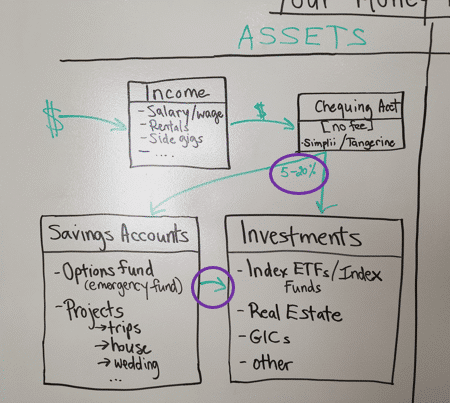 Your Money
ASSETS
$
Income
- Salary/wage
- Rentals
- Side gigs
- ....
$
Chequing Acct
[no fee]
- Simplii/Tangerine
5-20%
Savings Accounts
- Options fund
(emergency fund)
- Projects
→ trips
→ house
→ wedding
...
Investments
- Index ETFs/Index
Funds
- Real Estate
- GICs
- other